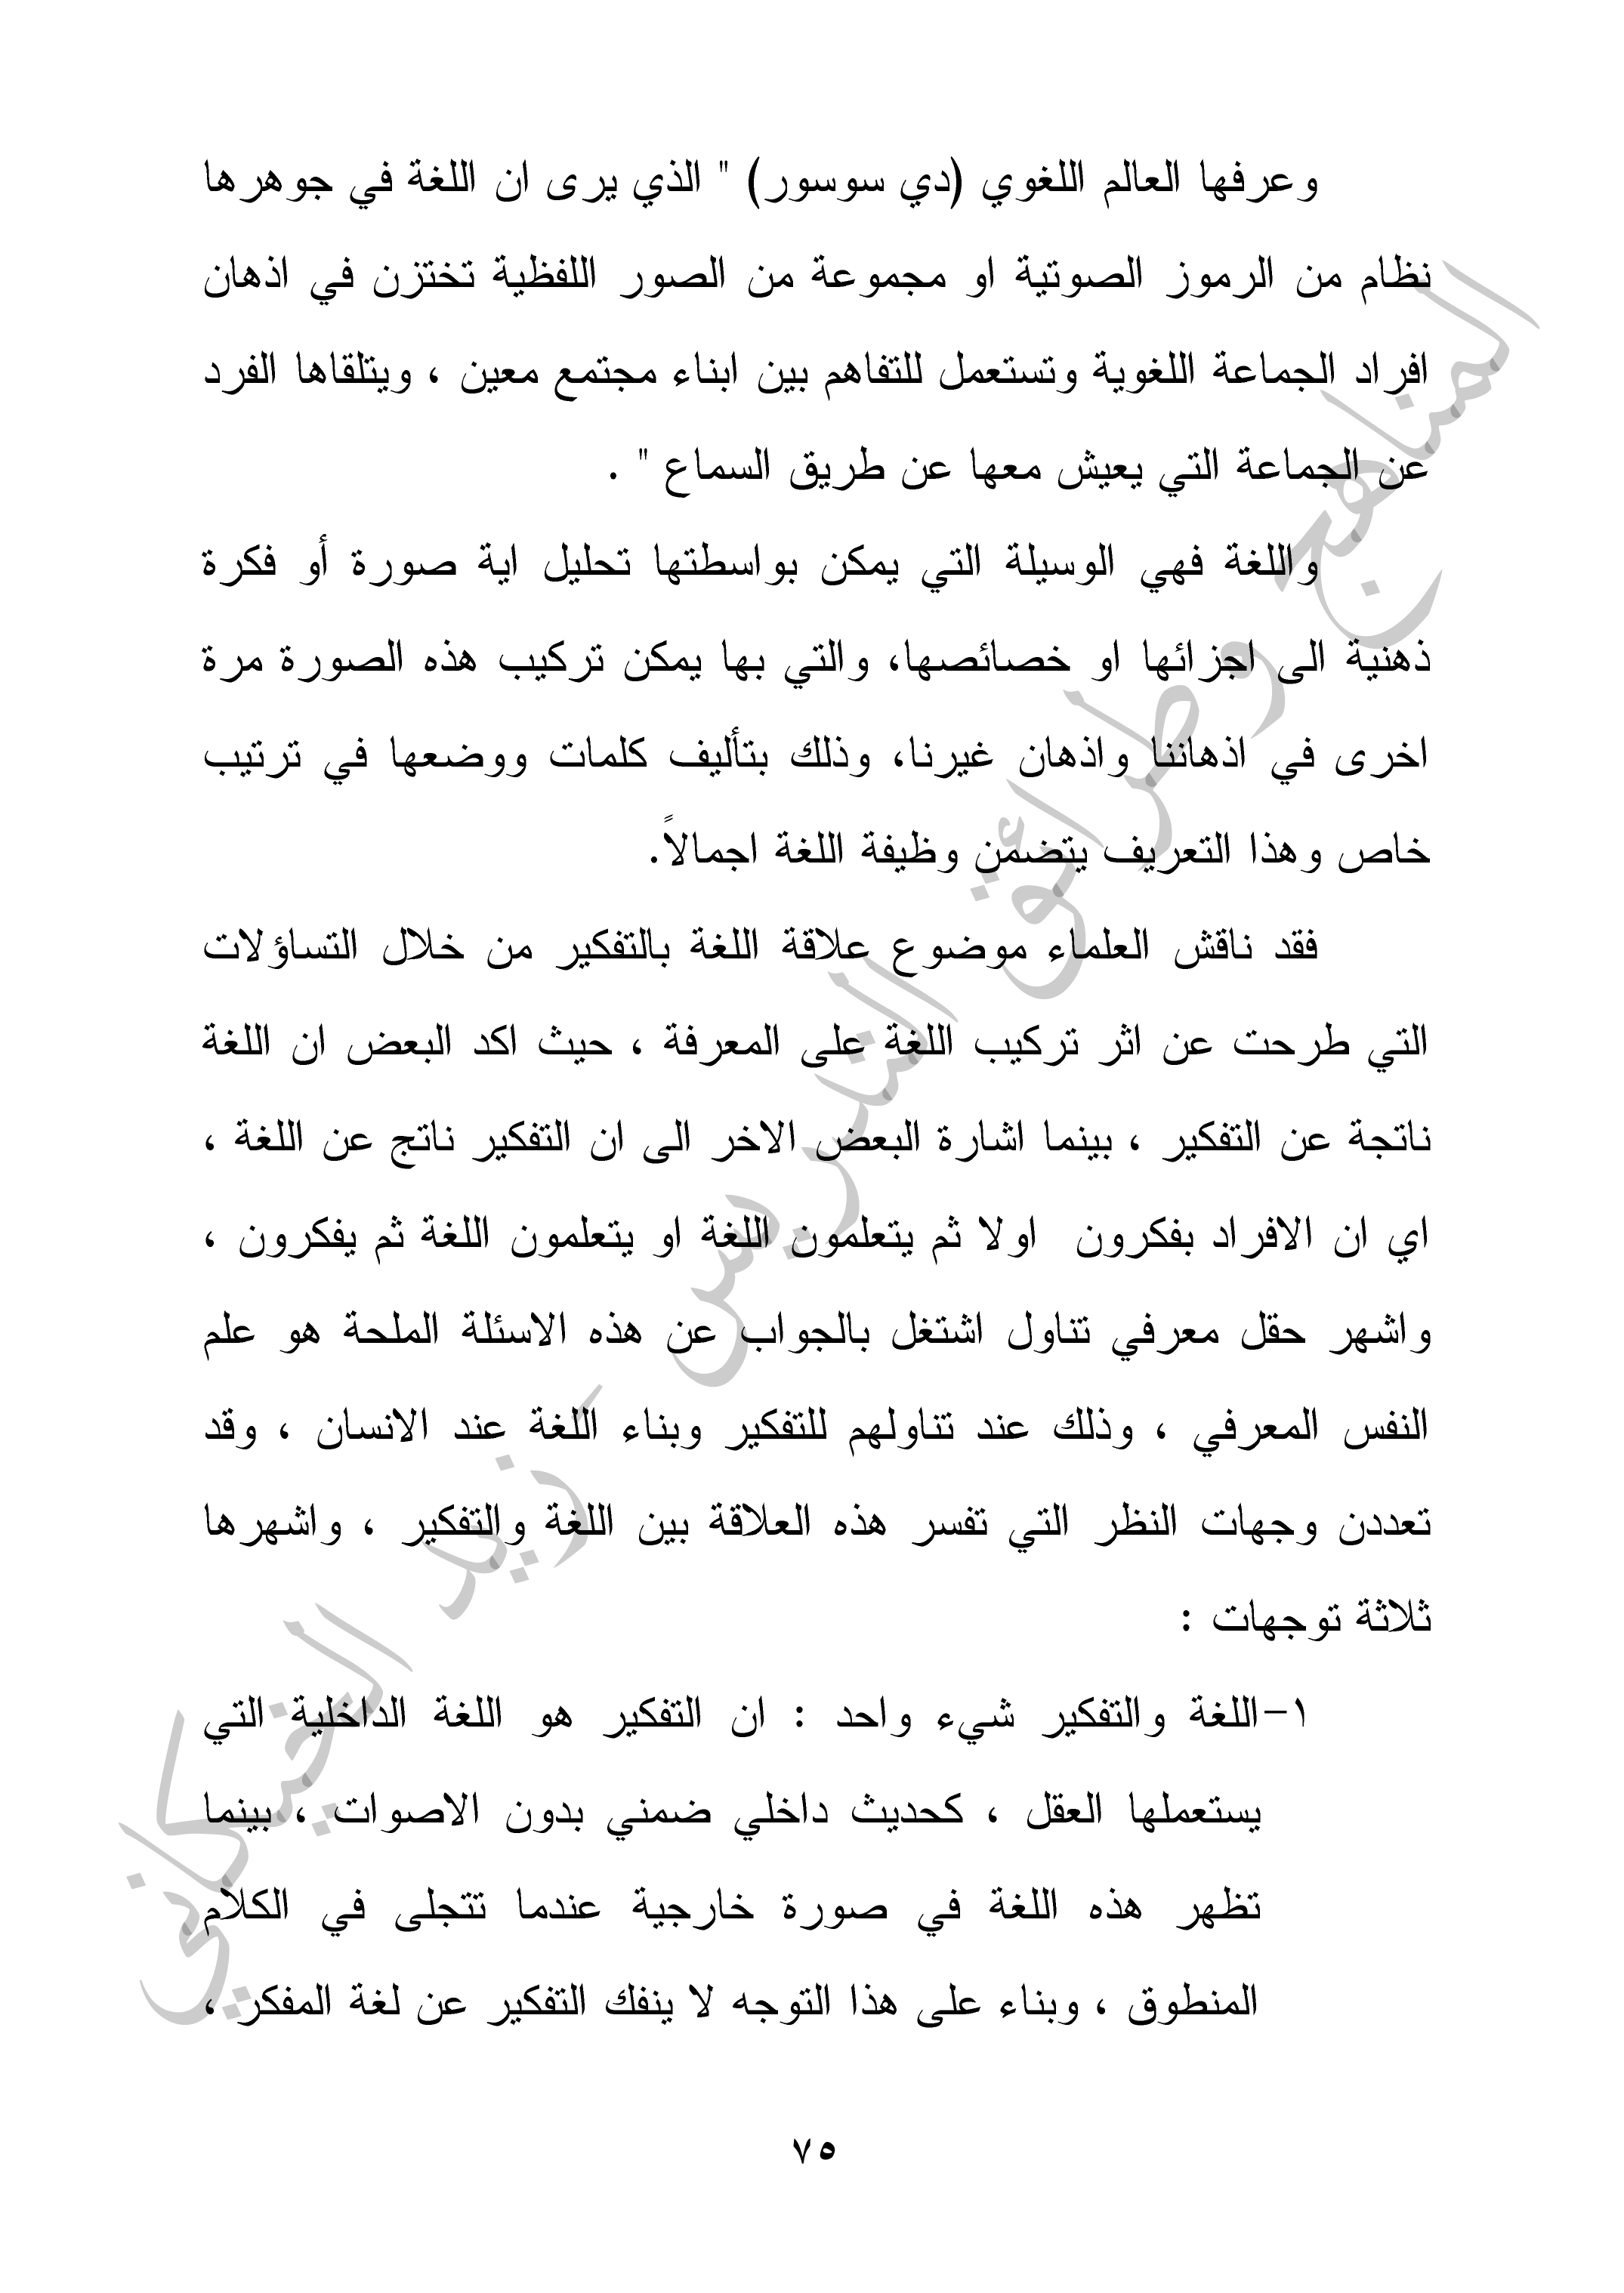 وعرفها العالم اللغوي (دي سوسور) " الذي يرى ان اللغة في جوهرها
نظام من الرموز الصوتية او مجموعة من الصور اللفظية تختزن في اذهان
افراد الجماعة اللغوية وتستعمل للتفاهم بين ابناء مجتمع معين ، ويتلقاها الفرد
عن الجماعة التي يعيش معها عن طريق السماع " .
واللغة فهي الوسيلة التي يمكن بواسطتها تحليل اية صورة أو فكرة
ذهنية الى اجزائها او خصائصها، والتي بها يمكن تركيب هذه الصورة مرة
اخرى في اذهاننا واذهان غيرنا، وذلك بتأليف كلمات ووضعها في ترتيب
خاص وهذا التعريف يتضمن وظيفة اللغة اجمالاً.
فقد ناقش العلماء موضوع علاقة اللغة بالتفكير من خلال التساؤلات
التي طرحت عن اثر تركيب اللغة على المعرفة ، حيث اكد البعض ان اللغة
ناتجة عن التفكير ، بينما اشارة البعض الاخر الى ان التفكير ناتج عن اللغة ،
اي ان الافراد بفكرون اولا ثم يتعلمون اللغة او يتعلمون اللغة ثم يفكرون ،
واشهر حقل معرفي تناول اشتغل بالجواب عن هذه الاسئلة الملحة هو علم
النفس المعرفي ، وذلك عند تناولهم للتفكير وبناء اللغة عند الانسان ، وقد
تعددن وجهات النظر التي تفسر هذه العلاقة بين اللغة والتفكير ، واشهرها
ثلاثة توجهات :
١-اللغة والتفكير شيء واحد : ان التفكير هو اللغة الداخلية التي
يستعملها العقل ، كحديث داخلي ضمني بدون الاصوات ، بينما
تظهر هذه اللغة في صورة خارجية عندما تتجلى في الكلام
المنطوق ، وبناء على هذا التوجه لا ينفك التفكير عن لغة المفكر ،
٧٥
المناهج وطرائق التدريس - زيد الخيكاني